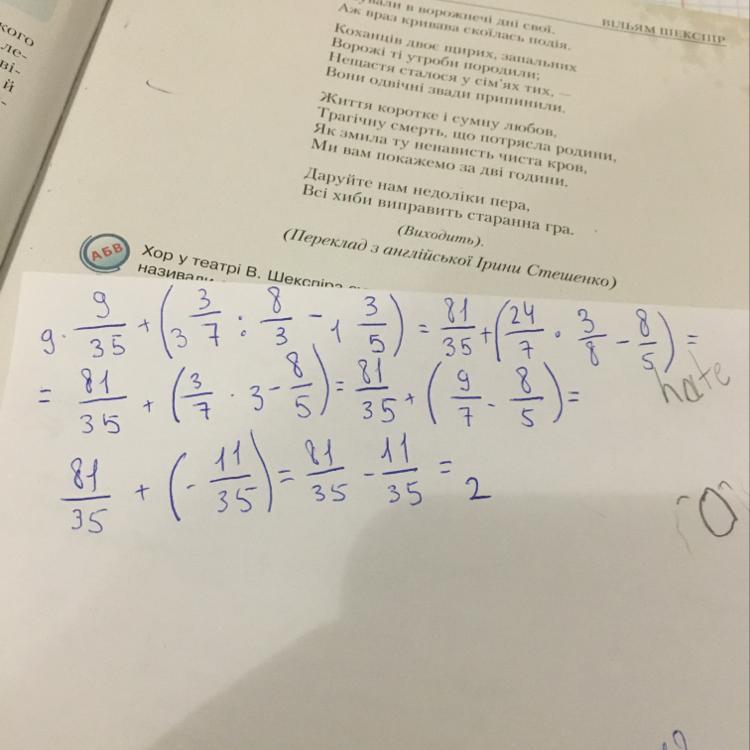 кого
ле-
ві-
й
ВІЛЬЯМ ШЕКСПІР
в ворожнечі дні свої.
Аж враз кривава скоїлась подія.
Коханців двоє щирих, запальних
Ворожі ті утроби породили;
Нещастя сталося у сім'ях тих, —
Вони одвічні звади припинили.
Життя коротке і сумну любов,
Трагічну смерть, що потрясла родини,
Як змила ту ненависть чиста кров,
Ми вам покажемо за дві години.
Даруйте нам недоліки пера,
Всі хиби виправить старанна гра.
(Виходить).
(Переклад з англійської Ірини Стешенко)
АБВ
Хор у театрі В. Шекспіра
називали
9 · 9/35 + (3 3/7 : 8/3 - 1 3/5) = 81/35 + (24/7 · 3/8 - 8/5) =
= 81/35 + (3/7 · 3 - 8/5) = 81/35 + (9/7 - 8/5) =
81/35 + (- 11/35) = 81/35 - 11/35 = 2
hate